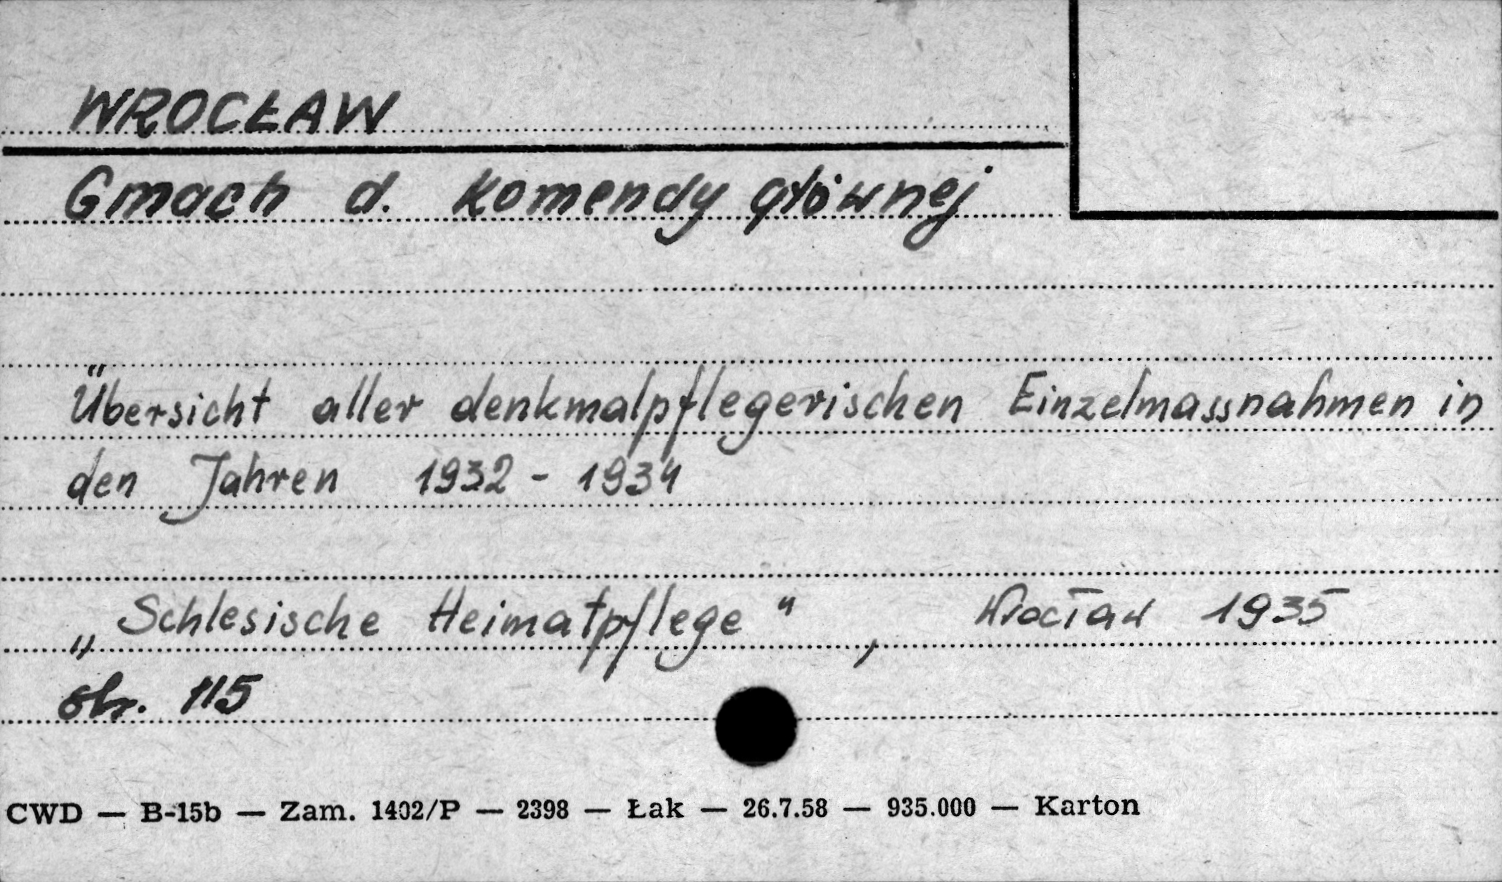 WROCŁAW
Gmach d. Komendy głównej
Übersicht aller denkmalpflegerischen Einzelmassnahmen in
den Jahren 1932 - 1934
„Schlesische Heimatpflege", Wrocław 1935
str. 115
CWD — B-15b — Zam. 1402/P — 2398 — Łak — 26.7.58 — 935.000 — Karton